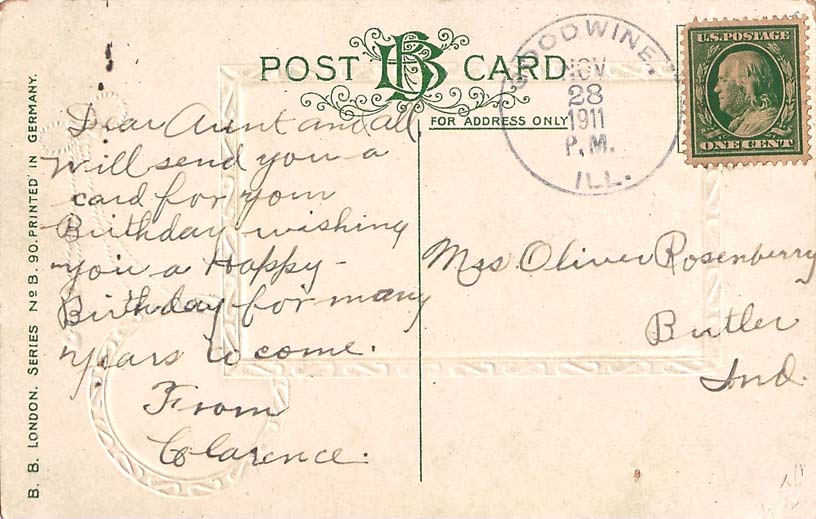 POST CARD
BB
FOR ADDRESS ONLY
GOODWINE.
NOV
28
1911
P.M.
ILL.
U.S. POSTAGE
ONE CENT
Dear Aunt and all
Will send you a
card for your
Birthday wishing
you a Happy-
Birthday for many
years to come.
From
Clarence.
Mrs. Oliver Rosenberry
Butler
Ind.
B. B. LONDON. SERIES No B. 90. PRINTED IN GERMANY.